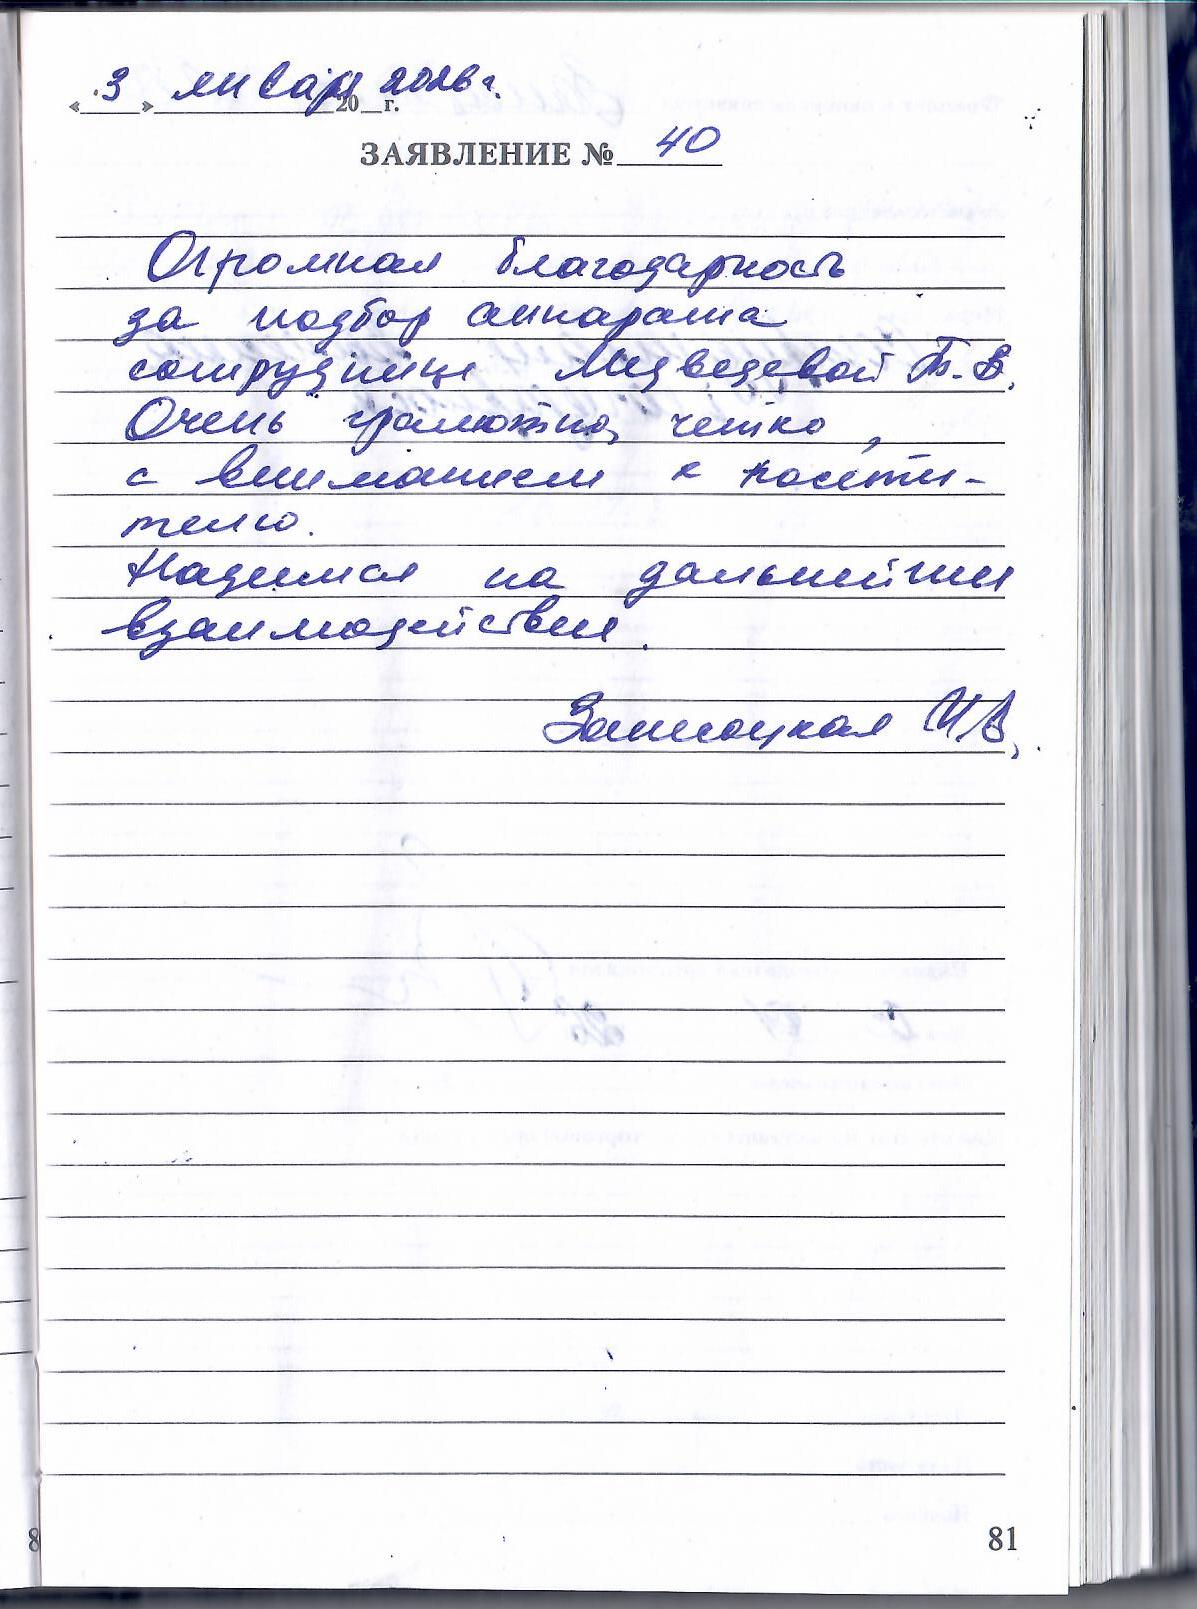 « 3 » января 2026 г. 20 г.
ЗАЯВЛЕНИЕ № 40
Огромная благодарность
за подбор аппарата
сотруднице Медведевой Т. В.
Очень грамотно, четко,
с вниманием к посети-
телю.
Надеемся на дальнейшее
взаимодействие.
И.В.
81